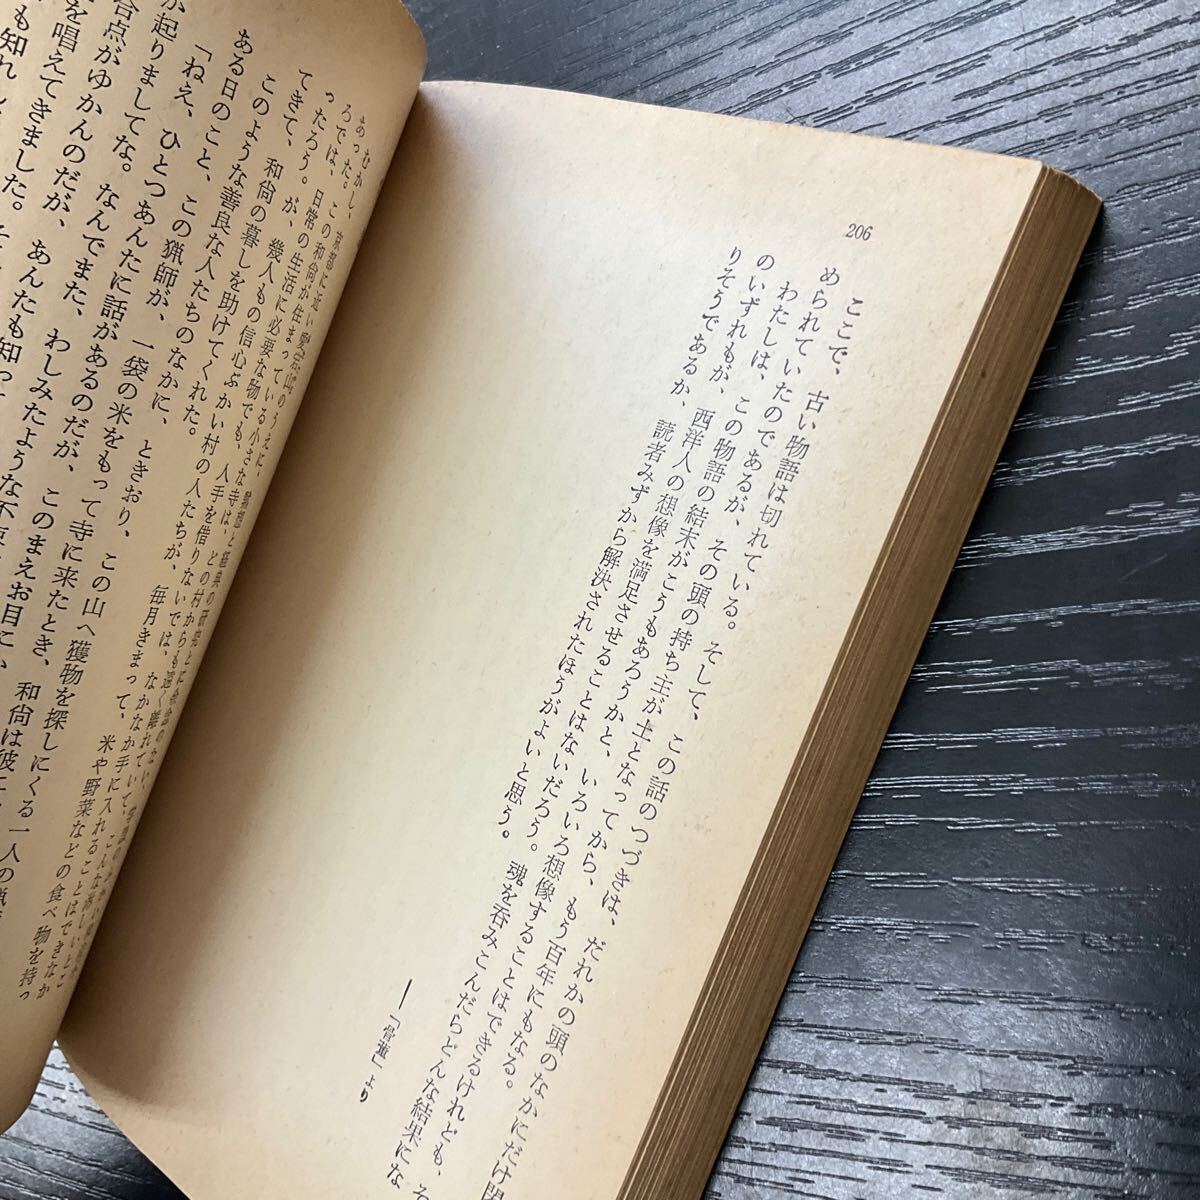 206
ここで、古い物語は切れている。そして、この話のつづきは、だれかの頭のなかにだけ
められていたのであるが、その頭の持ち主が土となってから、もう百年にもなる。
わたしは、この物語の結末がこうもあろうかと、いろいろ想像することはできるけれども、そ
のいずれもが、西洋人の想像を満足させることはないだろう。魂を呑みこんだらどんな結果にな
りそうであるか、読者みずから解決されたほうがよいと思う。
―「骨董」より
むかし、京都に近い愛宕山のうえに、黙想と経典の研究とに
あった。この和尚が住まっている小さな寺は、どの村からも遠く離れて
ろでは、日常の生活に必要な物でも、人手を借りないでは、なかなか手に入れることはできなか
ったろう。が、幾人もの信心ぶかい村の人たちが、毎月きまって、米や野菜などの食べ物を持っ
てきて、和尚の暮しを助けてくれた。
このような善良な人たちのなかに、ときおり、この山へ獲物を探しにくる一人の
ある日のこと、この猟師が、一袋の米をもって寺に来たとき、和尚は彼に
「ねえ、ひとつあんたに話があるのだが、このまえお目に
起りましてな。なんでまた、わしみたような不
合点がゆかんのだが、あんたも知って
を唱えてきました。そ
も知れ